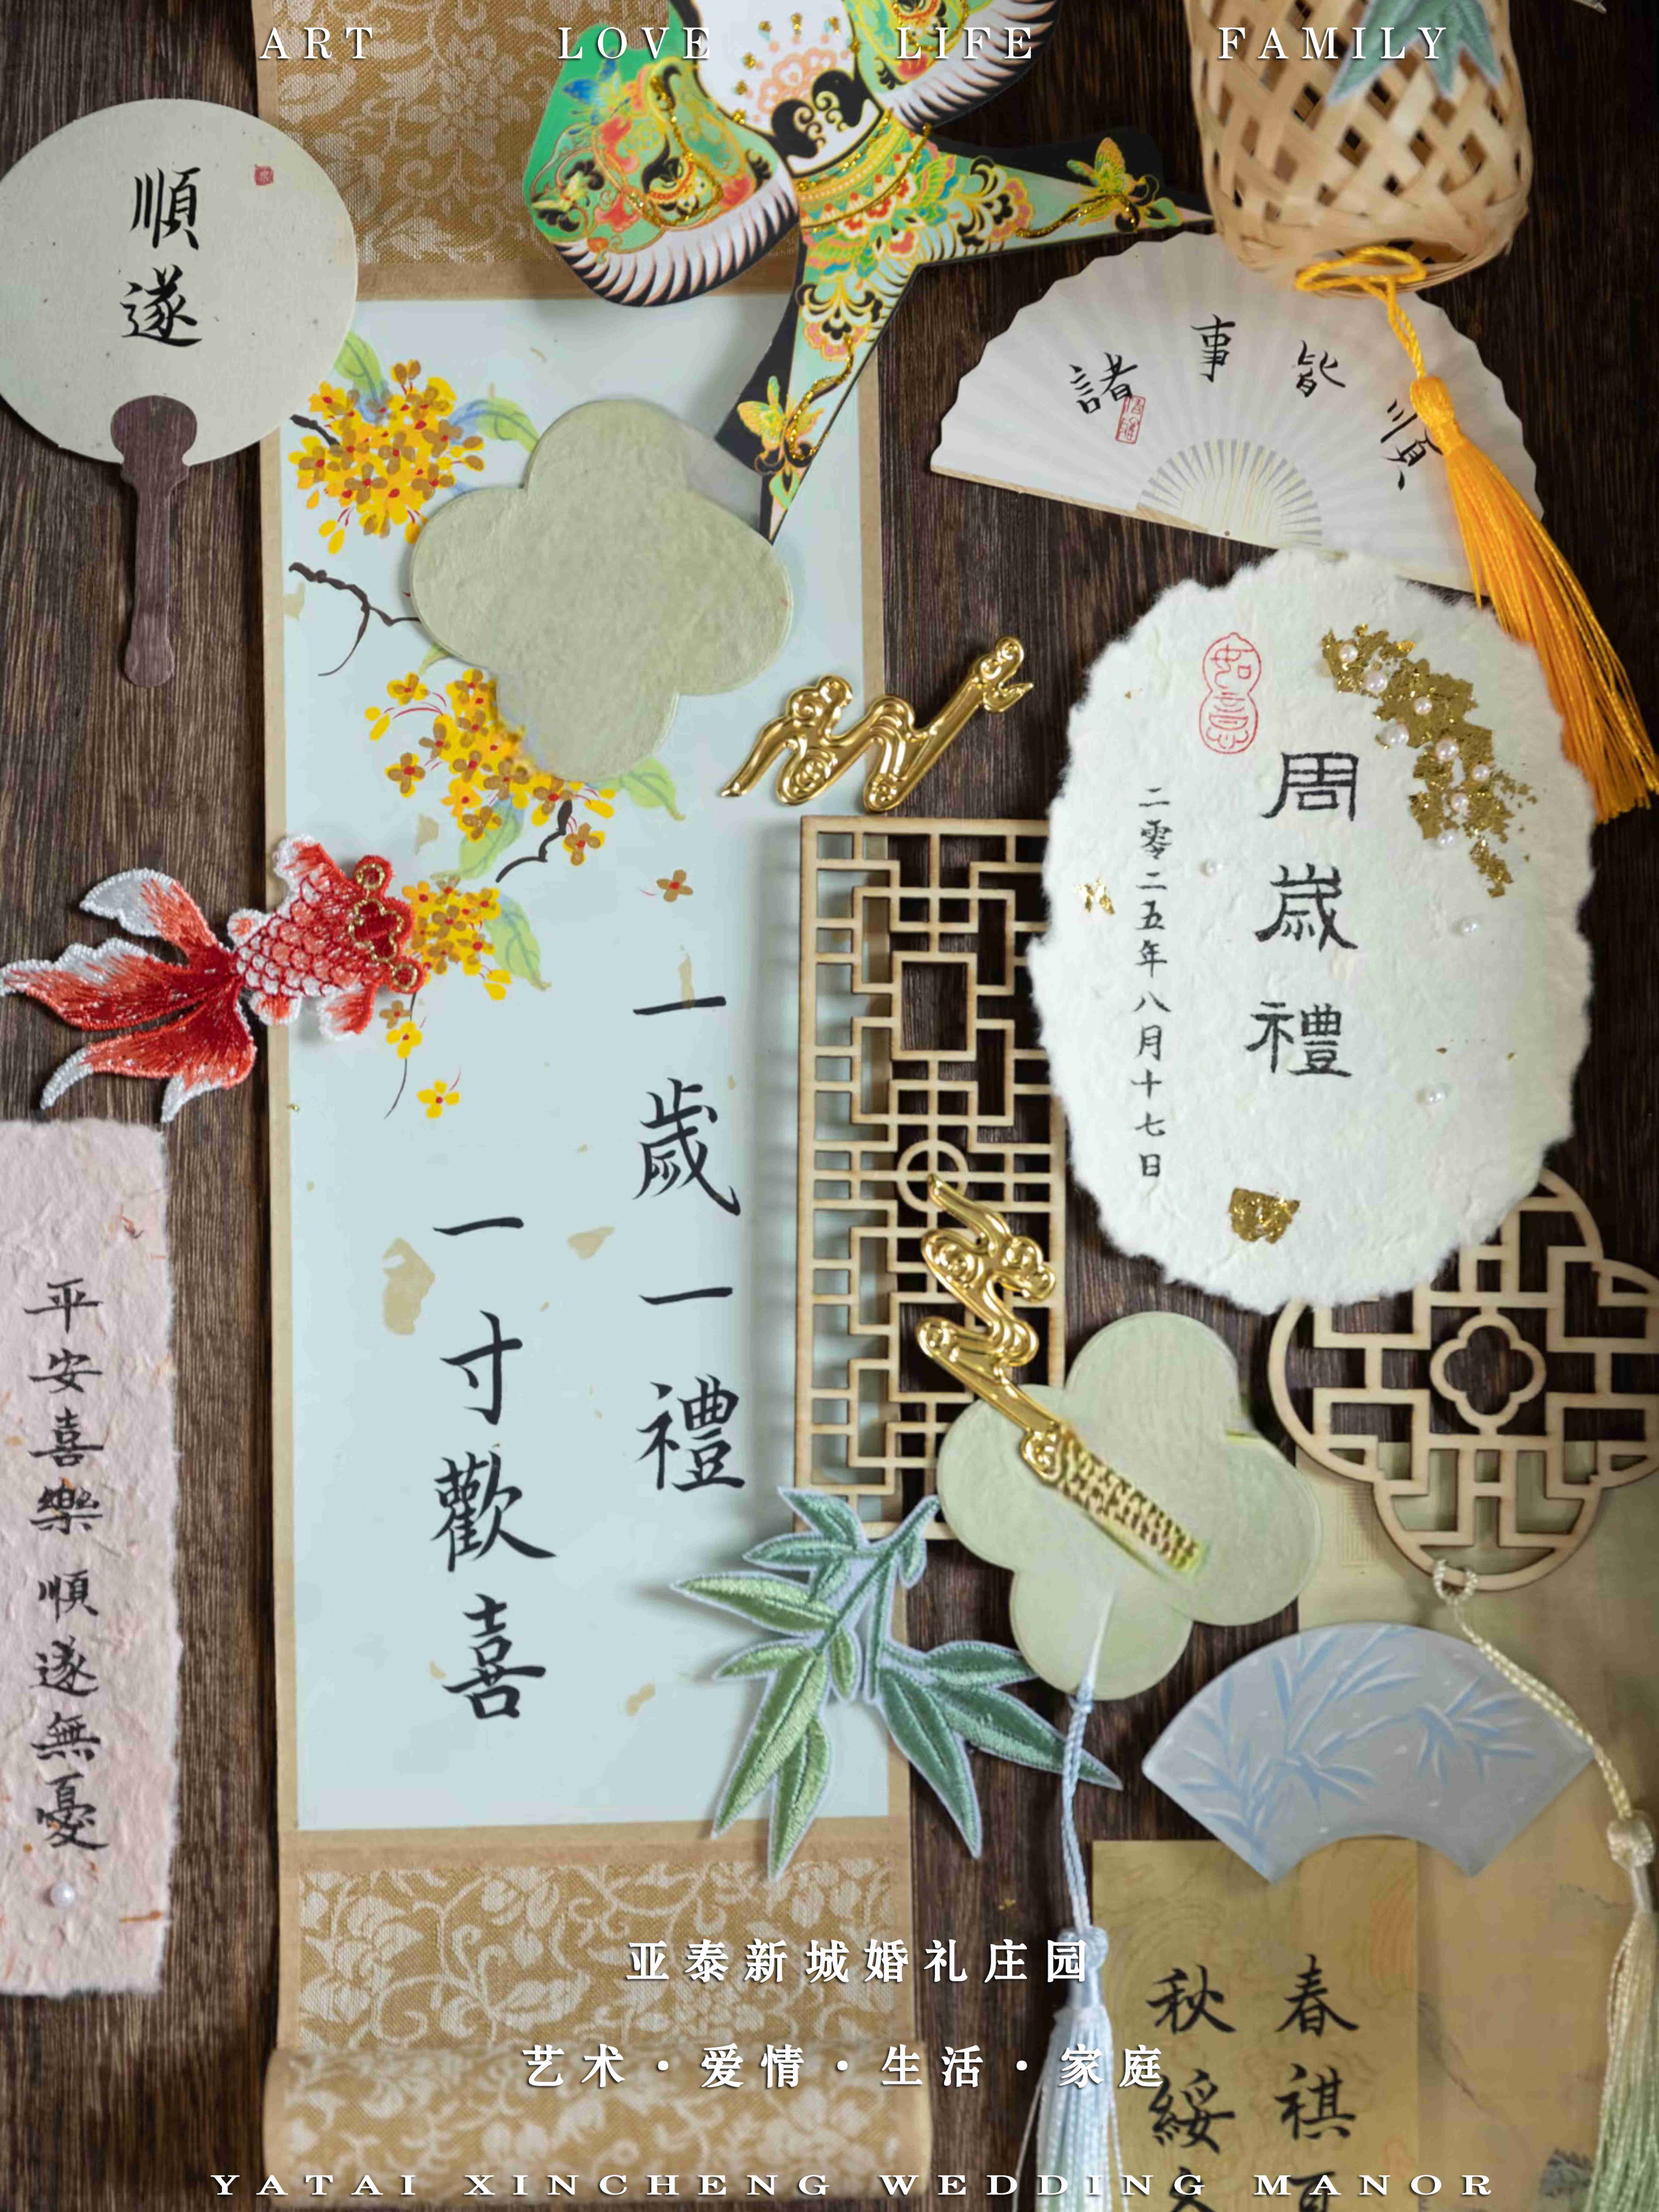 ART LOVE LIFE FAMILY
順遂
諸事皆順
如意
周歲禮
二零二五年八月十七日
一歲一禮
一寸歡喜
平安喜樂 順遂無憂
春祺
秋綏
亚泰新城婚礼庄园
艺术·爱情·生活·家庭
YATAI XINCHENG WEDDING MANOR